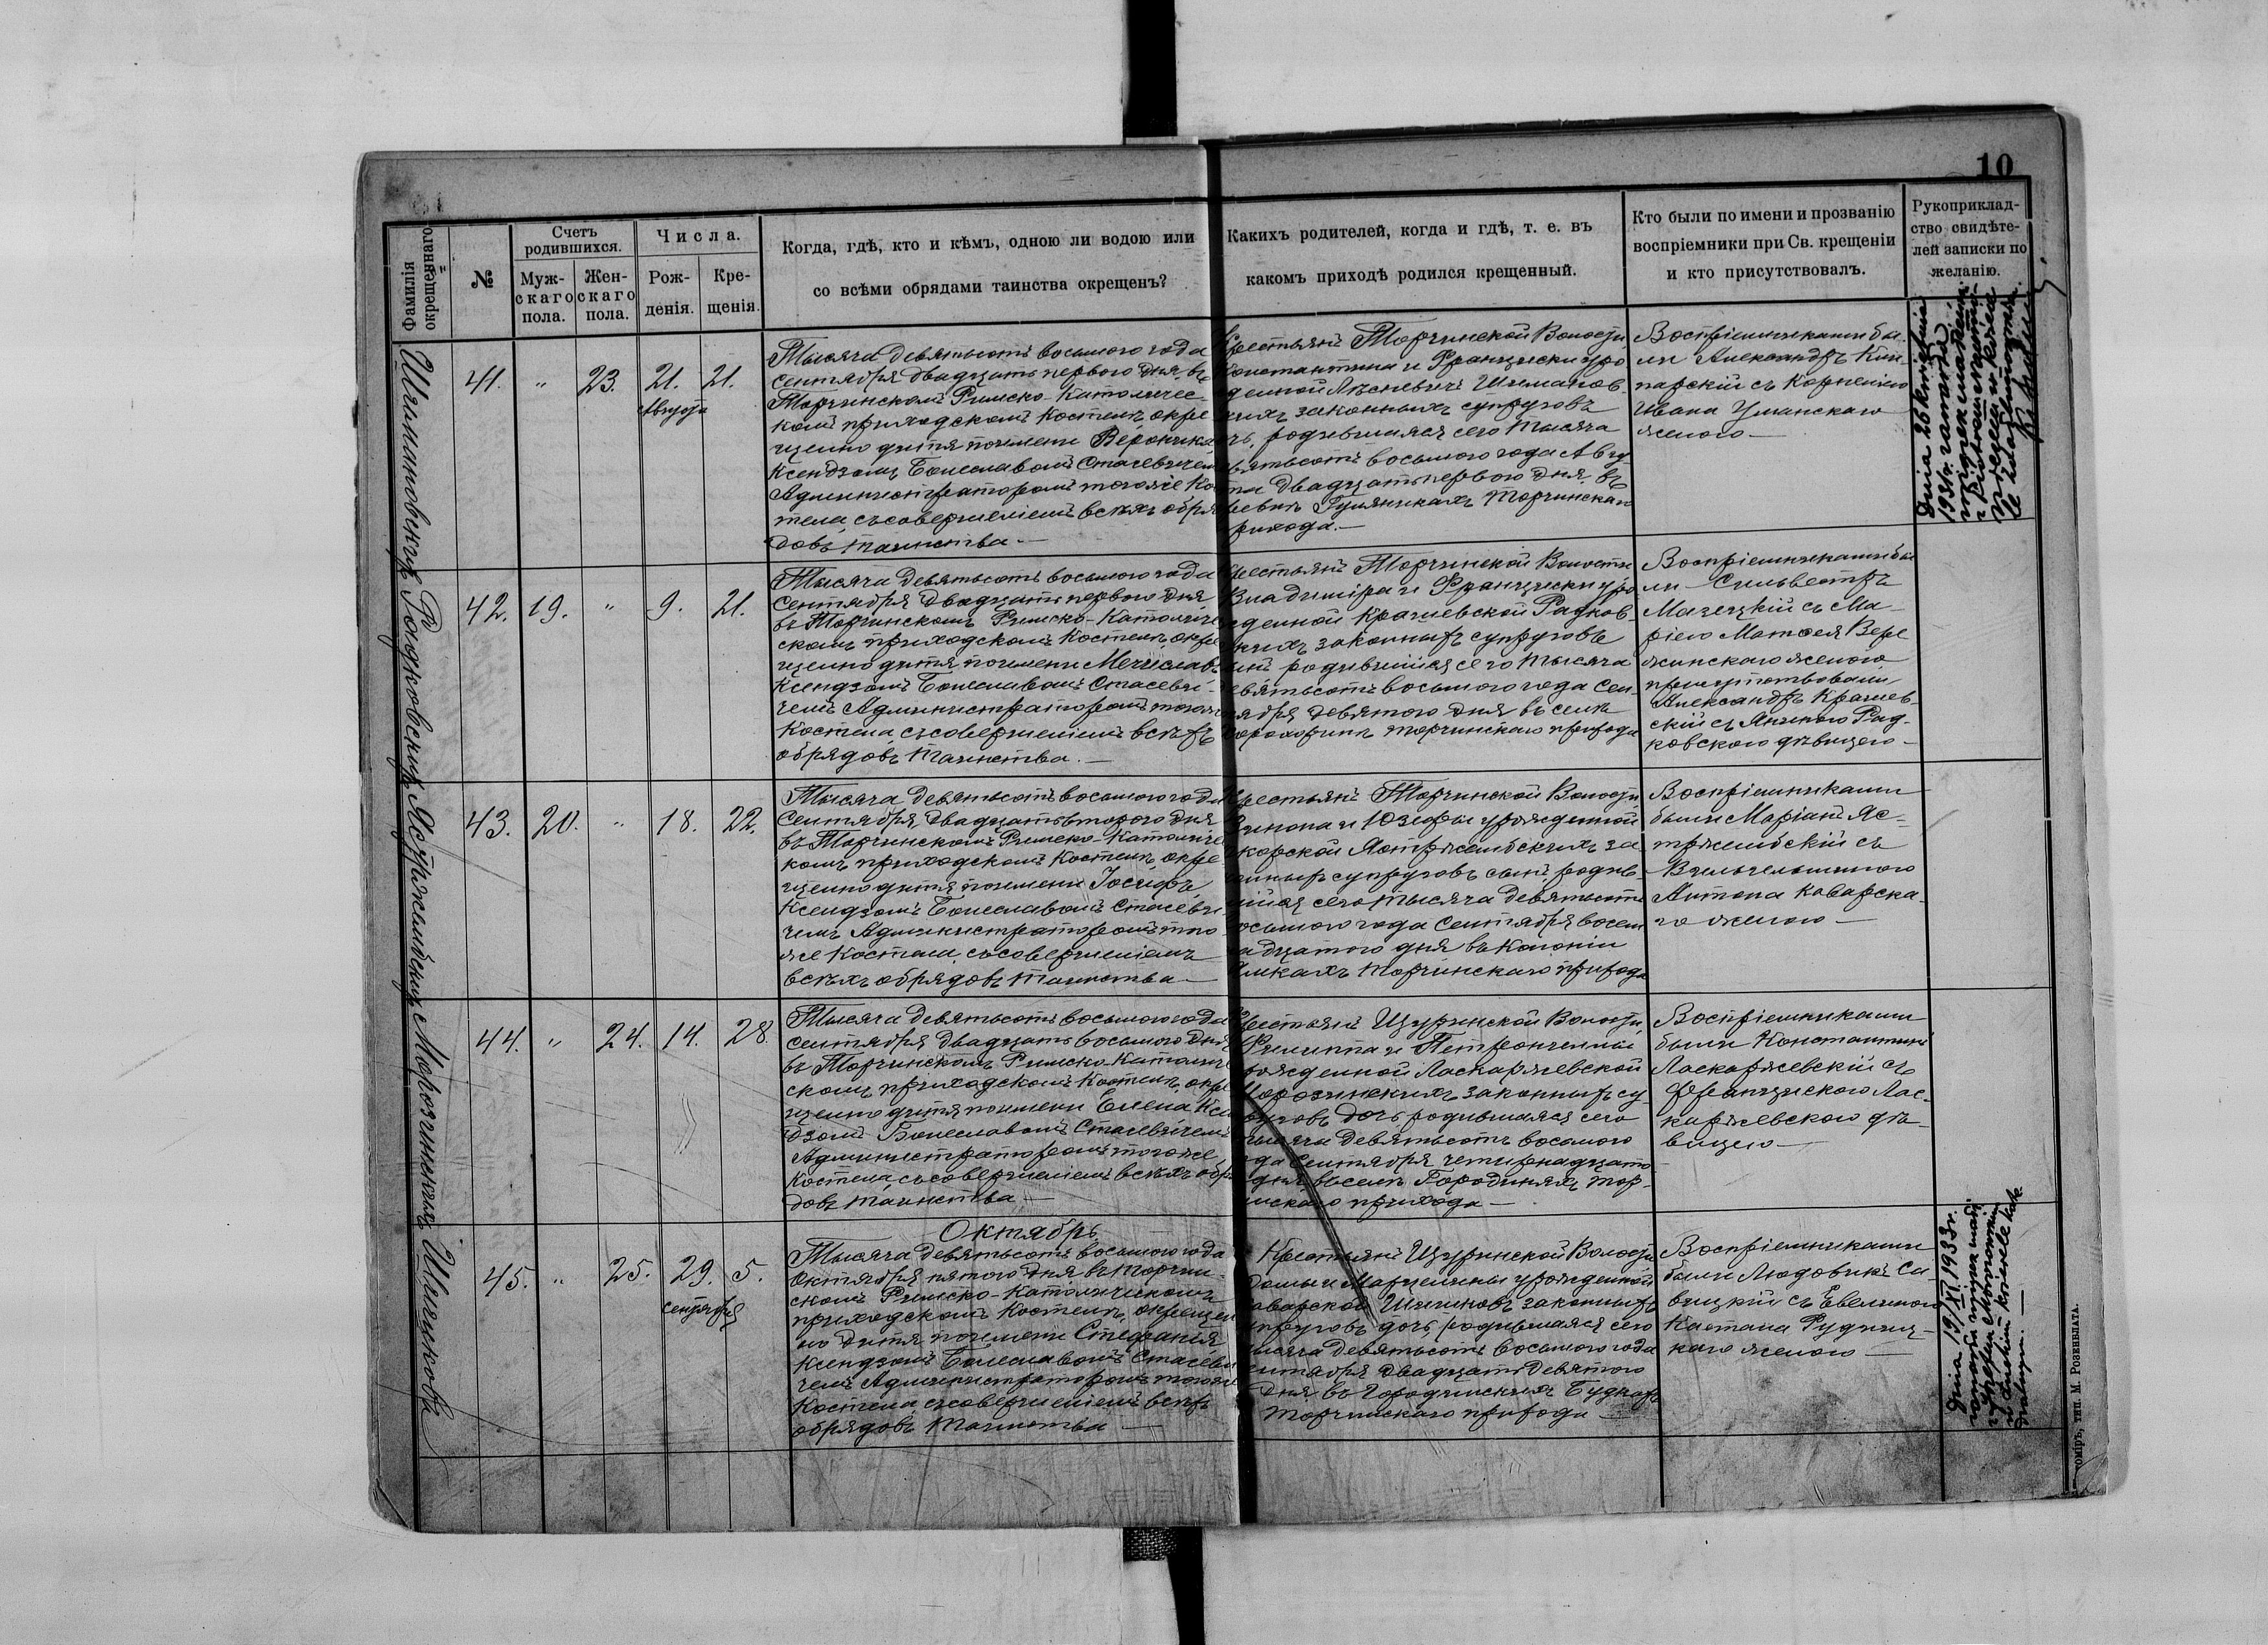 10
Фамилія окрещеннаго
№
Счетъ родившихся.
Муж-скаго пола.
Жен-скаго пола.
Числа.
Рож-денія.
Кре-щенія.
Когда, гдѣ, кто и кѣмъ, одною ли водою или
со всѣми обрядами таинства окрещенъ?
Какихъ родителей, когда и гдѣ, т. е. въ
какомъ приходѣ родился крещенный.
Кто были по имени и прозванію
воспріемники при Св. крещеніи
и кто присутствовалъ.
Рукоприклад-
ство свидѣте-
лей записки по
желанію.
Шимановскихъ
41. " 23. 21. 21.
Августа
Тысяча девятьсотъ восьмого года
Сентября двадцать перваго дня въ
Торчинскомъ Римско-Католичес-
комъ приходскомъ Костелѣ окре
щено дитя по имени Вероника
Ксендзомъ Болеславомъ Стасевичем
Администраторомъ того же Ко
тела, съ совершеніемъ всѣхъ обря
довъ таинства.—
крестьянъ Торчинской Волости
Константина и Францишки уро
денной Лѣсневичъ Шиманов-
скихъ законныхъ супруговъ
родившаяся сего тысяча
вятьсотъ восьмого года Авгу
двадцать перваго дня, въ
ревнѣ Гуляникахъ Торчинскаго
рихода.—
Воспріемниками бы-
ли Александръ Кли-
парскій съ Корнеліею
Ивана Уманскаго
женою—
Dnia 26 kwietnia
1931r. zawarła
Радковскихъ
42. 19. " 9. 21.
Тысяча девятьсотъ восьмого года
Сентября двадцать перваго дня
въ Торчинскомъ Римско-Католиче
скомъ приходскомъ Костелѣ окре
щено дитя по имени Мечиславъ
Ксендзомъ Болеславомъ Стасеви-
чемъ Администраторомъ того же
Костела, съ совершеніемъ всѣхъ
обрядовъ таинства.—
крестьянъ Торчинской Волости
Владиміра и Францишки уро
жденной Крачевской Радков-
скихъ законныхъ супруговъ
сынъ родившійся сего тысяча
девятьсотъ восьмого года Сен-
тября девятого дня въ селѣ
Торчинскаго прихода
Воспріемниками бы
ли Сильвестръ
Мачецкій съ Ма-
ріею Матѳея Вере
жинскаго женою
присутствовали
Александръ Крачев-
скій съ Яниною Рад-
ковскою дѣвицею—
Ястржембскихъ
43. 20. " 18. 22.
Тысяча девятьсотъ восьмого года
Сентября двадцать второго дня
въ Торчинскомъ Римско-Католиче
комъ приходскомъ Костелѣ окре
щено дитя по имени Іосифъ
Ксендзомъ Болеславомъ Стасеви-
чемъ Администраторомъ того
же Костела, съ совершеніемъ
всѣхъ обрядовъ таинства—
крестьянъ Торчинской Волости
и Юзефы урожденной
Ястржембскихъ за
конныхъ супруговъ сынъ, родив
шійся сего тысяча девятьсотъ
восьмого года Сентября восем
надцатого дня въ Колоніи
Торчинскаго прихода
Воспріемниками
были Маріанъ Яс-
тржембскій съ
Вильгельминою
Антона Каварска-
го женою—
Морозинскихъ
44. " 24. 14. 28.
Тысяча девятьсотъ восьмого года
Сентября двадцать восьмого дня
въ Торчинскомъ Римско-Католиче
скомъ приходскомъ Костелѣ окре
щено дитя по имени Елена Ксен
дзомъ Болеславомъ Стасевичемъ
Администраторомъ того же
Костела, съ совершеніемъ всѣхъ обря
довъ таинства—
крестьянъ Щуринской Волости
Филиппа и Петронелли
рожденной Ласкаржевской
Морозинскихъ законныхъ су-
пруговъ дочь, родившаяся сего
тысяча девятьсотъ восьмого
года Сентября четырнадцато
дня, въ селѣ Городиняхъ Тор-
чинскаго прихода—
Воспріемниками
были Константинъ
Ласкаржевскій съ
Францишкою Лас-
каржевскою дѣ-
вицею—
Шишковъ
Октябрь
45. " 25. 29. 5.
сентября
Тысяча девятьсотъ восьмого года
Октября пятого дня въ Торчин-
скомъ Римско-Католическомъ
приходскомъ Костелѣ, окрещен
но дитя по имени Стефанія
Ксендзомъ Болеславомъ Стасеви
чемъ Администраторомъ того же
Костела съ совершеніемъ всѣхъ
обрядовъ таинства—
Крестьянъ Щуринской Волости
и Марцелины урожденной
Каварской Шишковъ законныхъ
супруговъ дочь, родившаяся сего
тысяча девятьсотъ восьмого года
Сентября двадцать девятого
дня въ Городинскихъ Будкахъ
Торчинскаго прихода—
Воспріемниками
были Людовикъ Са-
вицкій съ Евелиною
Каетана Рудниц-
каго женою—
Dnia 19/XI 1933r.
тип. М. Розенблата.